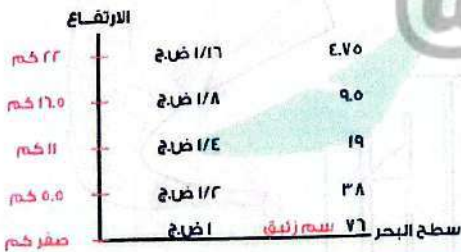 الارتفـاع
٢٢ كم ١/١٦ ض.ج ٤.٧٥
١٦.٥ كم ١/٨ ض.ج ٩.٥
١١ كم ١/٤ ض.ج ١٩
٥.٥ كم ١/٢ ض.ج ٣٨
صفر كم ١ ض.ج سم زئبق ٧٦ سطح البحر
@